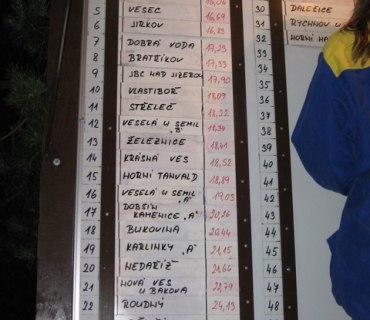 16,06
5 VESEC 16,69
6 JIRKOV 16,83
7 DOBRÁ VODA 17,23
8 BRATŘÍKOV 17,33
9 JBC NAD JIZEROU 17,90
10 VLASTIBOŘ 18,09
11 STŘELEČ 18,22
12 VESELÁ U SEMIL "B" 18,34
13 ŽELEZNICE 18,41
14 KRÁSNÁ VES 18,52
15 HORNÍ TANVALD 18,89
16 VESELÁ U SEMIL "A" 19,03
17 DOBŠÍN KAMENICE "A" 20,26
18 BUKOVINA 20,44
19 KARLINKY "A" 21,15
20 21,66
21 NOVÁ VES U BAKOVA 22,79
22 ROUDNÝ 24,13
30 DALEŠICE
31 RYCHNOV U
32 HORNÍ HA
33
34
35
36
37
38
39
40
41
42
43
44
45
46
47
48